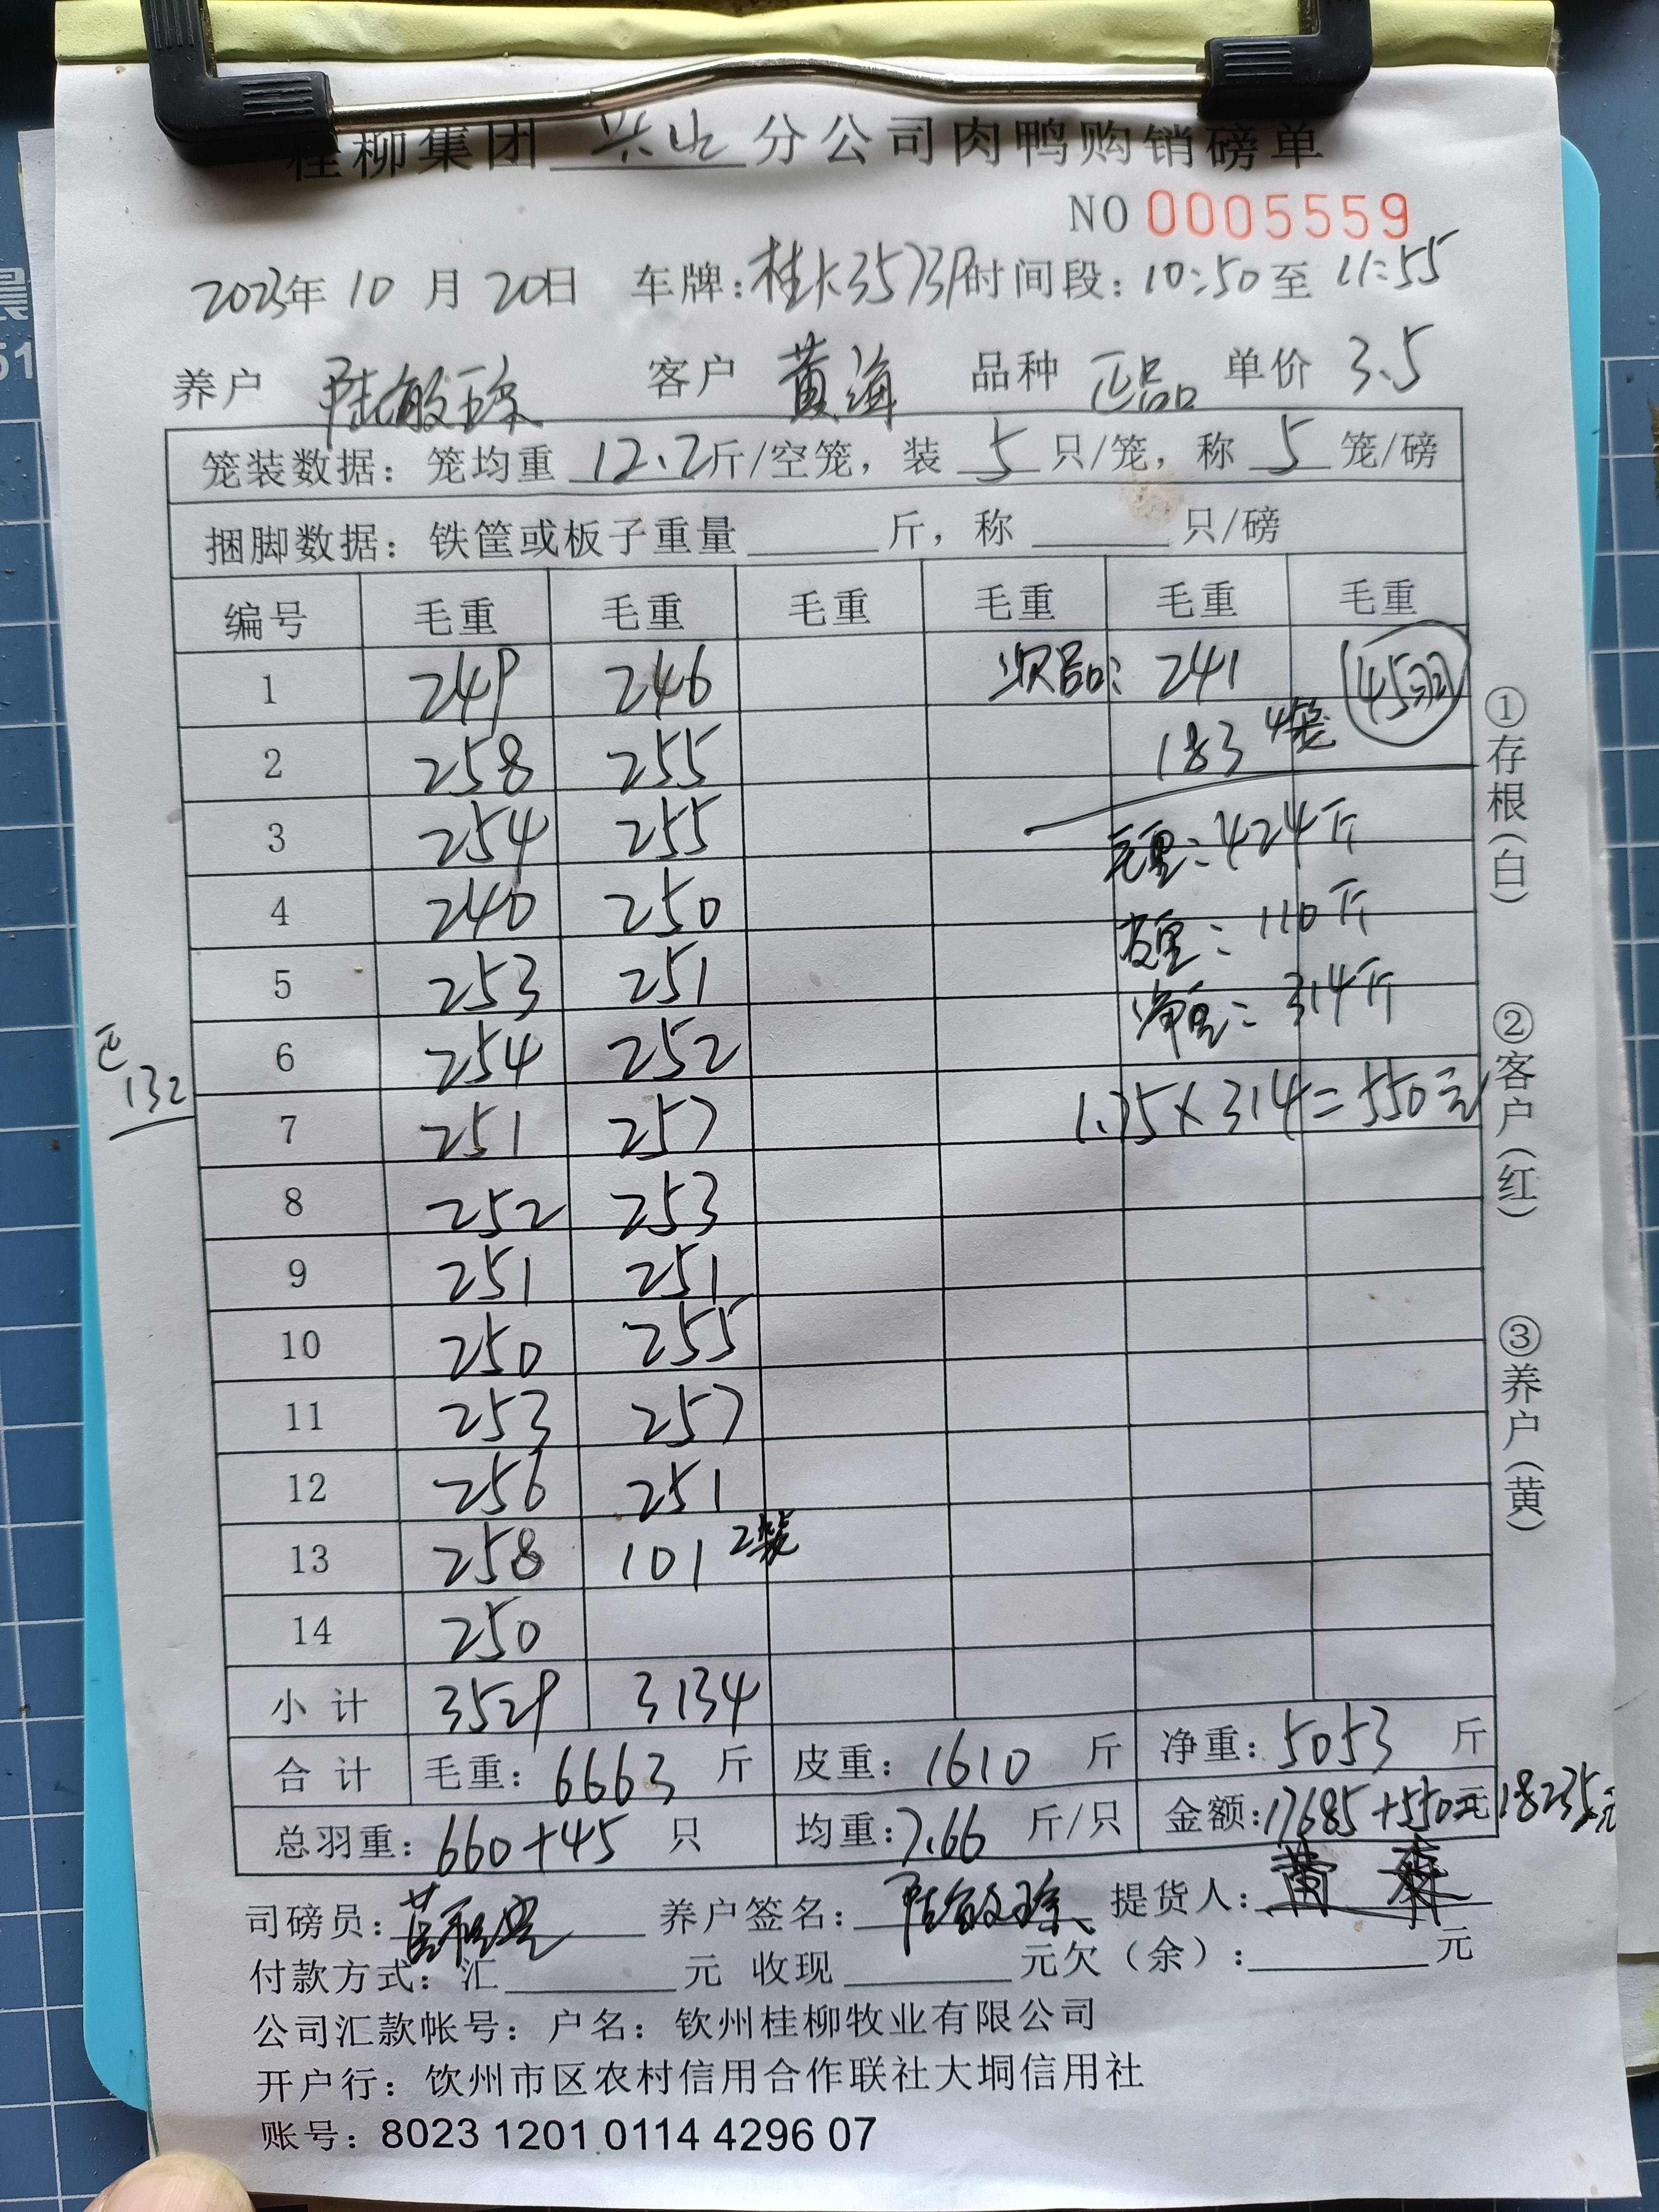 桂柳集团 分公司肉鸭购销磅单
NO 0005559
2023年 10 月 20日 车牌: 时间段: 10:50 至 11:55
养户 陆敏琼 客户 黄海 品种 正品 单价 3.5
笼装数据: 笼均重 12.2斤/空笼, 装 5 只/笼, 称 5 笼/磅
捆脚数据: 铁筐或板子重量 斤, 称 只/磅
编号 毛重 毛重 毛重 毛重 毛重 毛重
1 249 246 次品: 241 45羽
2 258 255 183 4笼
3 254 255 毛重: 424斤
4 240 250 皮重: 110斤
5 253 251 净重: 314斤
6 254 252
正132
7 251 257 1.75×314=550元
8 252 253
9 251 251
10 250 255
11 253 257
12 256 251
13 258 101 2笼
14 250
小计 3529 3134
合计 毛重: 6663 斤 皮重: 1610 斤 净重: 5053 斤
总羽重: 660+45 只 均重: 7.66 斤/只 金额: 17685+550元 18235元
司磅员: 养户签名: 陆敏琼 提货人:
付款方式: 汇 元 收现 元欠(余): 元
公司汇款帐号: 户名: 钦州桂柳牧业有限公司
开户行: 钦州市区农村信用合作联社大垌信用社
账号: 8023 1201 0114 4296 07
①存根(白)
②客户(红)
③养户(黄)